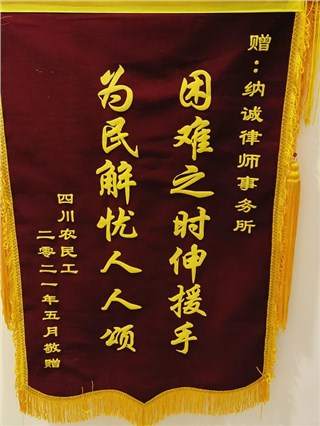 赠：纳诚律师事务所
困难之时伸援手
为民解忧人人颂
四川农民工
二零二一年五月敬赠